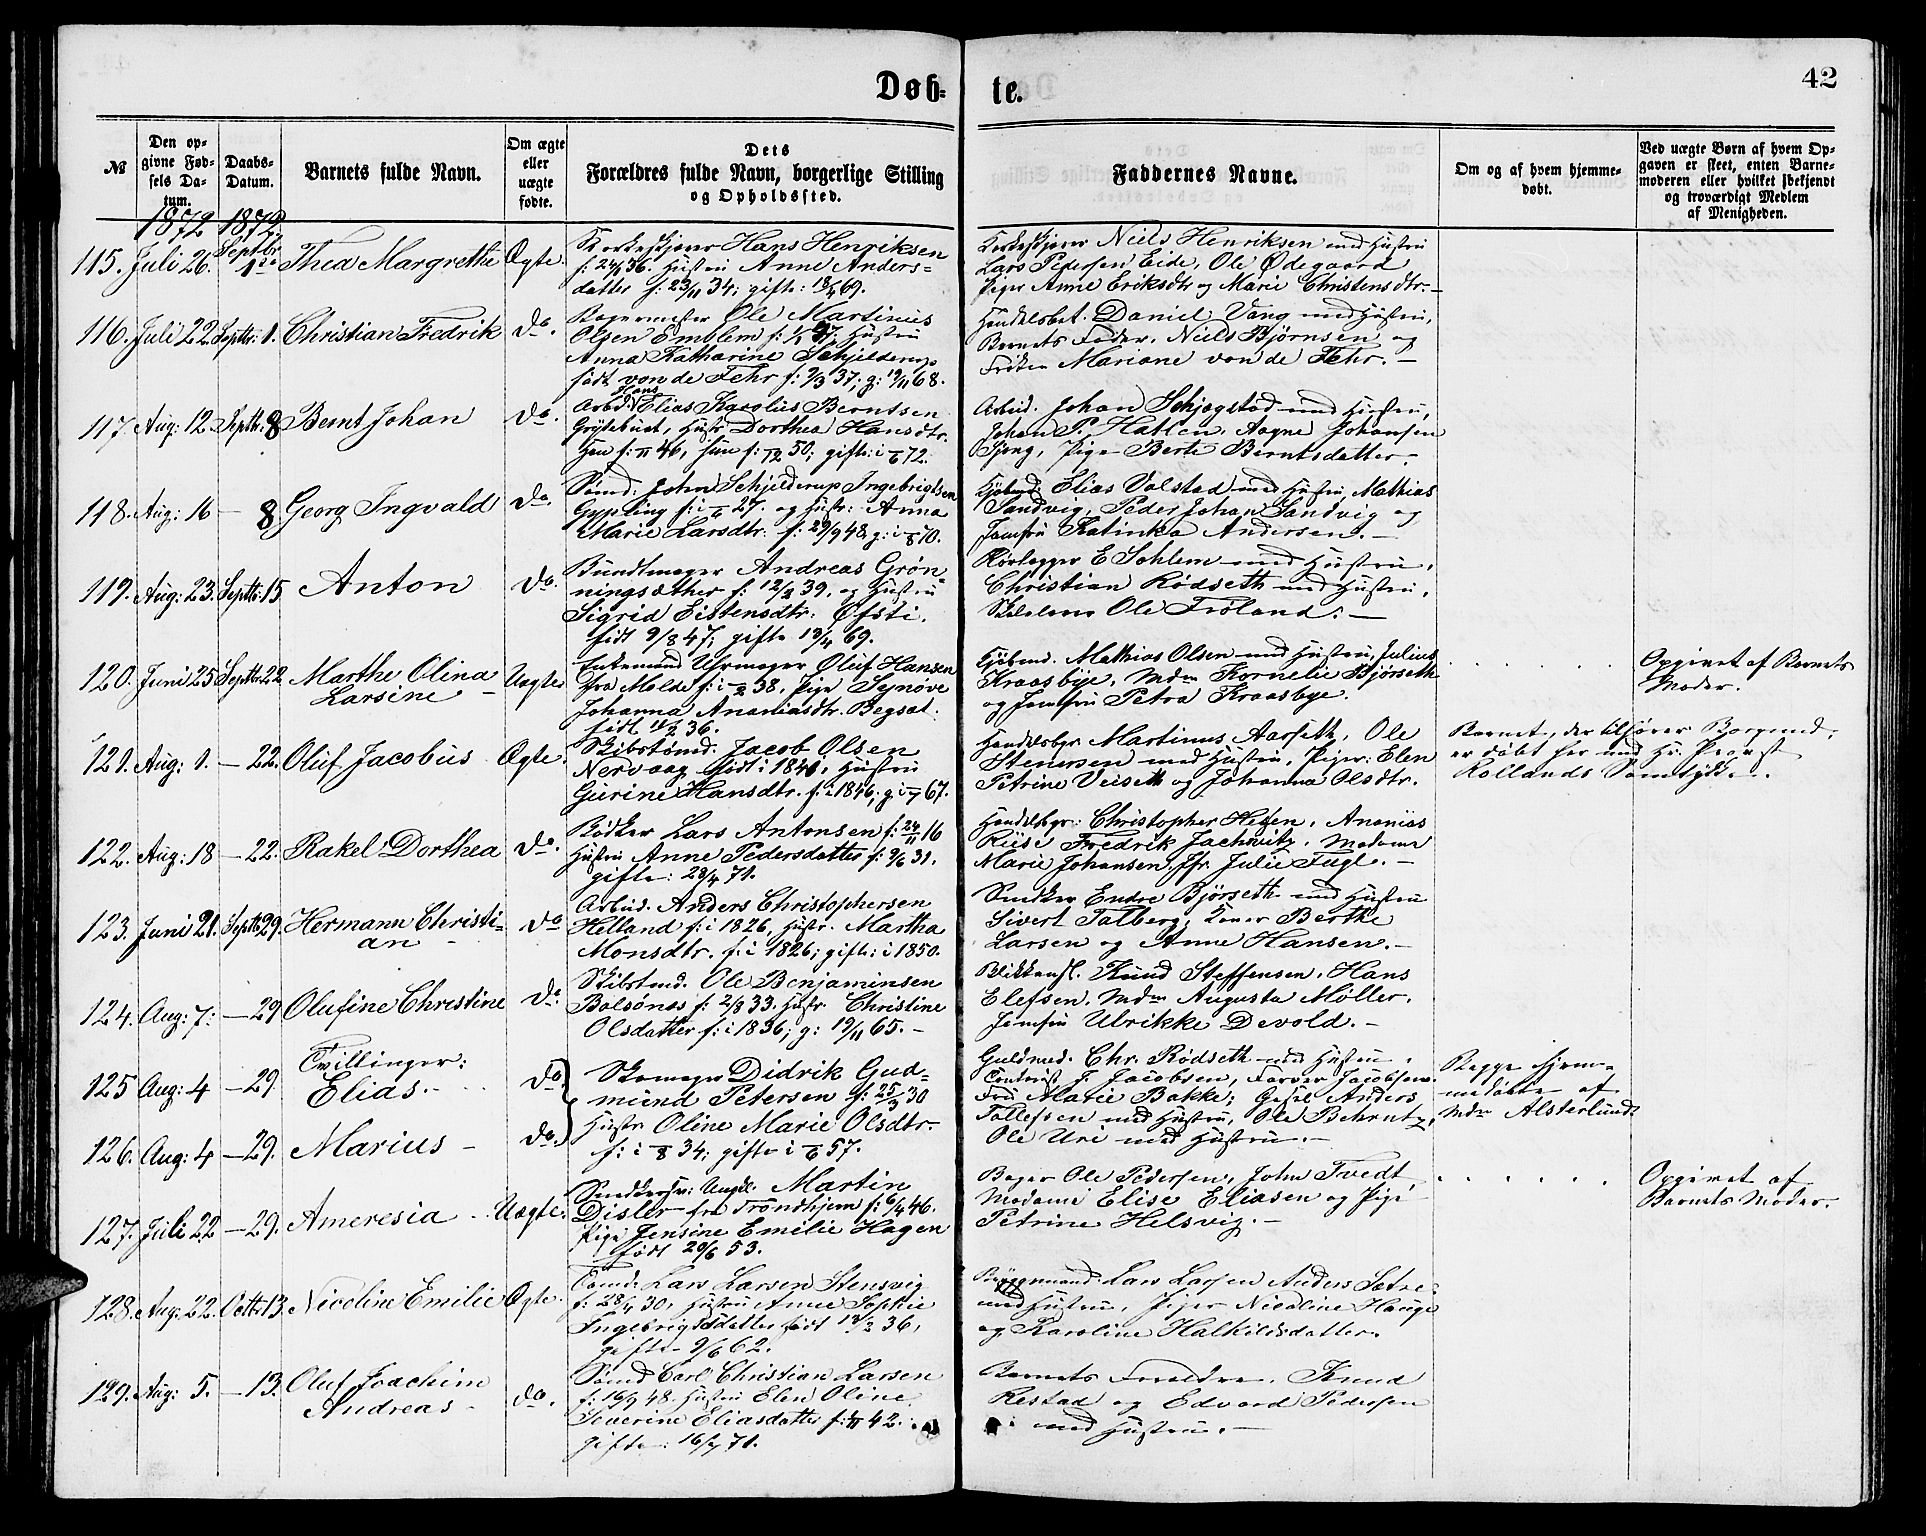 Døb-
te.
42
№
Den opgivne Fødsels Datum.
Daabs-Datum.
Barnets fulde Navn.
Om ægte eller uægte fødte.
Dets Forældres fulde Navn, borgerlige Stilling og Opholdssted.
Faddernes Navne.
Om og af hvem hjemmedøbt.
Ved uægte Børn af hvem Opgaven er skeet, enten Barnemoderen eller hvilket bekjendt og troværdigt Medlem af Menigheden.
1872 1872
115. Juli 26. Septbr 1ste Thea Margrethe Ægte.
Hans Henriksen
Hustru Anne Anders-
datter f: 23/11 34; gift: 18/4 69.
Niels Henriksen med Hustru
Lars Pedersen Eide, Ole Ødegaard
Piger Anne Eriksdtr og Marie Christensdtr.-
116. Juli 22 Septbr: 1. Christian Fredrik do.
Bagermester Ole Martinius
Olsen Emblem Hustru
Anna Katharine Schjelderup
født von de Fehr f: 9/3 37; g: 19/11 68.
Handelsbet. Daniel Vang med Hustru,
Barnets Fader, Niels Bjørnsen og
Frøken Mariane von de Fehr.-
117. Aug: 12. Septbr: 8 Bernt Johan do.
Hans
Arbd: Elias Karolus Berntsen
Hustr. Dorthea Hansdtr.
Han f: 11 46, hun f: 12 50; gifte: i 6 72.
Arbeid. Johan Schjegstad med Hustru,
Johan P. Hatlen, Aagne Johansen
Pige Berte Berntsdatter.
118. Aug: 16 - 8 Georg Ingvald do
Sømd: John Schjelderup Ingebrigtsen
27. og Hustr: Anna
Marie Larsdtr: f: 29/9 48, g: i 8 70.
Elias Valstad med Hustru, Mathias
Sandvig, Peder Johan Sandvig og
Jomfru Katinka Andersen.-
119. Aug: 23. Septbr: 15 Anton do.
Bundtmager Andreas Grøn-
ningsæther f: 12/2 39, og Hustru
Sigrid Eistensdtr: Øfsti,
født 9/8 47; gifte 13/4 69.
E Sohlem med Hustru,
Christian Rødseth med Hustru,
Ole Frøland.-
120. Juni 25 Septbr 22. Marthe Olina Uægte
Larsine -
Enkemand Uhrmager Oluf Hansen
fra Molde f: i 2 38, Pige Synøve
Johanna Ananiasdtr. Begset
36.
Kjøbmd. Mathias Olsen med Hustru, Julius
Kraasbye, Mdm Kornelie Bjørseth
og Jomfru Petra Kraasbye.
Opgivet af Barnets
Moder.
121. Aug: 1. - 22. Oluf Jacobus Ægte.
Skibstømd. Jacob Olsen
Nervaag født i 1841, Hustru
Gurine Hansdtr. f: i 1846; g: i 67.
Handelsbgr. Martinus Aarseth, Ole
Stenersen med Hustru, Piger: Elen
Petrine Veiseth og Johanna Olsdtr.
Barnet, der tilhører Borgund,
er døbt her med Hr. Provst
Kollands Samtykke.
122. Aug: 18 - 22. Rakel Dorthea do.
Bødker Lars Antonsen f: 24/11 16
Hustru Anne Pedersdatter f: 9/6 31,
gifte: 28/4 71.
Handelsbgr: Christopher Hegen, Ananias
Riise Fredrik Jachwitz, Madame
Marie Johansen, Jfr. Julie Fugl.-
123. Juni 21. Septbr 29. Hermann Christi- do
an -
Arbeid. Anders Christophersen
Helland f: i 1826, Hustr. Martha
Monsdtr. f: i 1826; gifte: i 1850.
Snedker Endre Bjørseth med Hustru
Sivert Talberg, Koner Berthe
Larsen og Anne Hansen.-
124. Aug: 7: - 29 Olufine Christine do
Skibstmd. Ole Benjaminsen
Bolsønes f: 2/8 33. Hustr. Christine
Olsdatter f: i 1836; g: 19/11 65.-
Blikkensl. Knud Steffensen, Hans
Elefsen, Mdm Augusta Møller,
Jomfru Ulrikke Devold.-
Tvillinger:
125 Aug: 4 - 29 Elias.- do.
126. Aug: 4 - 29. Marius - do.
Skomager Didrik Gud-
mund Petersen f: 25/3 30
Hustr Oline Marie Olsdtr.
f: i 8 34; gifte i 6 57.
Guldsmd. Chr. Rødseth med Hustru,
J. Jacobsen, Farver Jacobsen
Fru Marie Bakke; Gesel Anders
Tollefsen med Hustru, Ole Behrntz,
Ole Uri med Hustru.-
Begge hjem-
medøbte af
Mdm Alsterlund
127. Juli 22 - 29. Ameresia - Uægte.
Snedkersv: Ungk. Martin
Disler fra Trondhjem f: 6/4 46.
Pige Jensine Emilie Hagen
født 20/6 53.
Bager Ole Pedersen, John Tvedt,
Madame Elise Eliasen og Pige
Petrine Helsvig.-
Opgivet af
Barnets Moder.
128. Aug: 22. Octbr 13. Nicoline Emilie Ægte.
Tømd: Lars Larsen Stensvig
f: 28/4 30, Hustru Anne Sophie
Ingebrigtsdatter født 13/2 36,
gifte 9/6 62.
Lars Larsen Anders Sætre
med Hustru, Piger Nicoline Hauge
og Karoline Halkildsdatter.
129. Aug: 5. - 13. Oluf Joachim do.
Andreas -
Sømd Carl Christian Larsen
f: 16/9 48. Hustru Elen Oline
Severine Eliasdatter f: 11 42.
gifte: 16/7 71.
Barnets Forældre, Knud
Restad og Edvard Pedersen
med Hustru.-